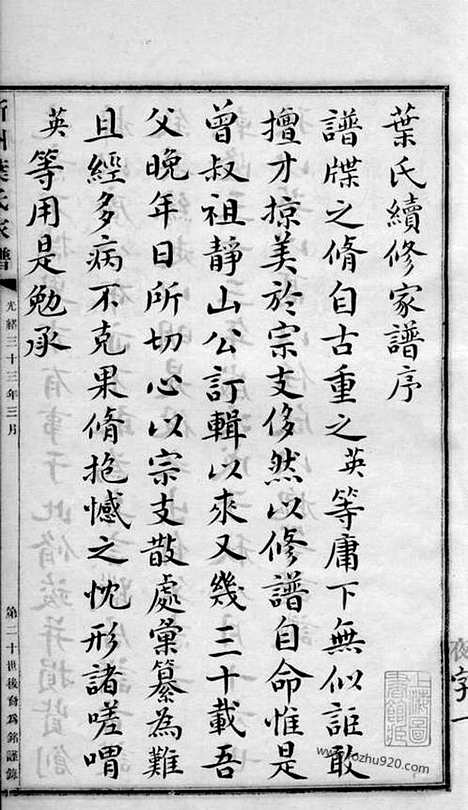 葉氏續修家譜序
譜牒之脩自古重之英等庸下無似詎敢
擅才掠美於宗支侈然以修譜自命惟是
曾叔祖靜山公訂輯以來又幾三十載吾
父晚年日所切心以宗支散處彙纂為難
且經多病不克果脩抱憾之忱形諸嗟喟
英等用是勉承
葉氏家譜
光緒三十三年三月
第二十世後裔為銘謹錄
上海圖書館藏
www.fozhu920.com